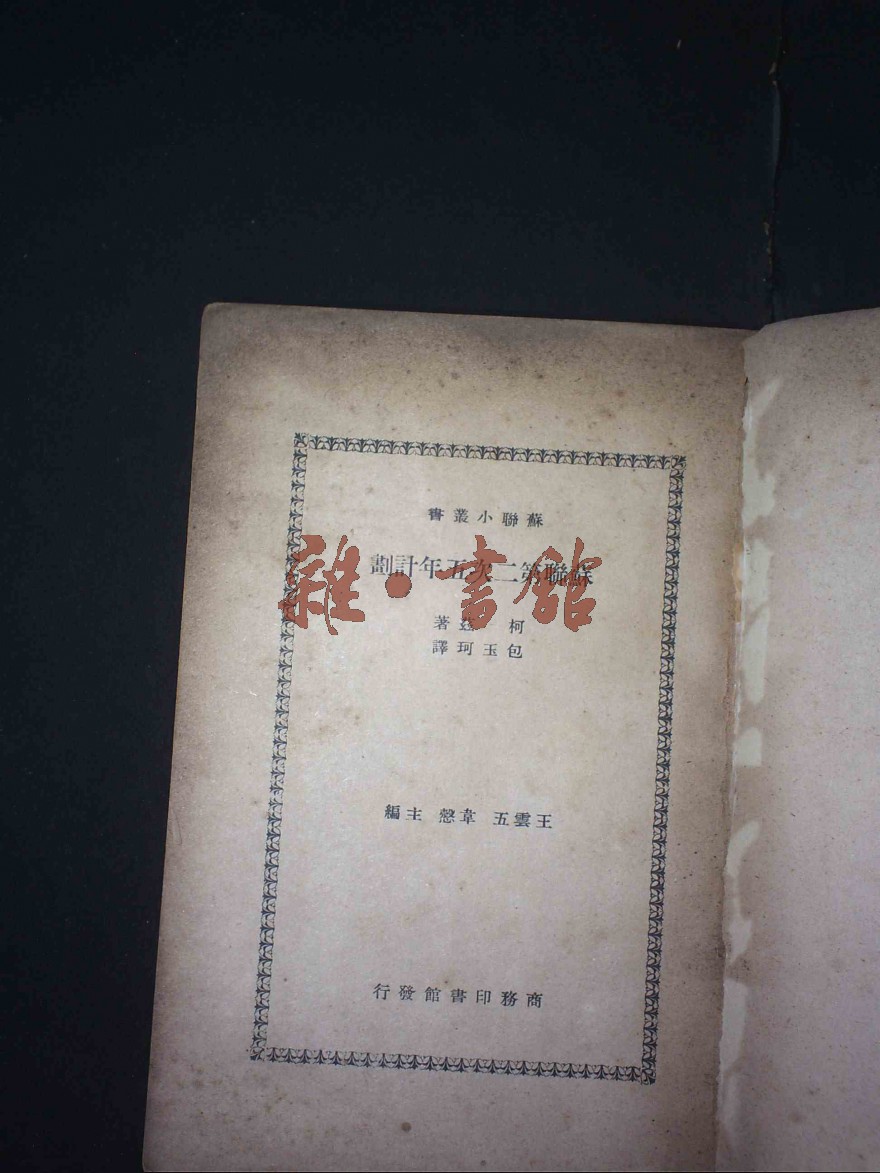 蘇聯小叢書
蘇聯第二次五年計劃
柯茲著
包玉珂譯
王雲五 韋愨 主編
商務印書館發行
雜·書館